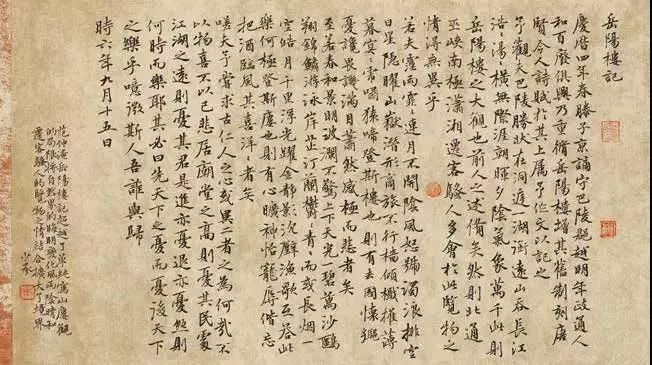 岳陽樓記
慶曆四年春滕子京謫守巴陵郡越明年政通人
和百廢俱興乃重脩岳陽樓增其舊制刻唐
賢今人詩賦於其上屬予作文以記之
予觀夫巴陵勝狀在洞庭一湖銜遠山吞長江
浩〻湯〻橫無際涯朝暉夕陰氣象萬千此則
岳陽樓之大觀也前人之述備矣然則北通
巫峽南極瀟湘遷客騷人多會於此覽物之
情得無異乎
若夫霪雨霏〻連月不開陰風怒號濁浪排空
日星隱曜山嶽潛形商旅不行檣傾楫摧薄
暮冥〻虎嘯猿啼登斯樓也則有去國懷鄉
憂讒畏譏滿目蕭然感極而悲者矣
至若春和景明波瀾不驚上下天光一碧萬沙鷗
翔錦鱗游泳岸芷汀蘭鬱〻青〻而或長烟一
空皓月千里浮光躍金靜影沉璧漁歌互答此
樂何極登斯樓也則有心曠神怡寵辱偕忘
把酒臨風其喜洋〻者矣
嗟夫予嘗求古仁人之心或異二者之為何哉不
以物喜不以己悲居廟堂之高則憂其民處
江湖之遠則憂其君是進亦憂退亦憂然則
何時而樂耶其必曰先天下之憂而憂後天下
之樂乎噫微斯人吾誰與歸
時六年九月十五日
范仲淹岳陽樓記超越了單純寫山水樓觀
的局限將自然界的晦明變化風雨陰晴和
遷客騷人的覽物之情結合擴大了境界